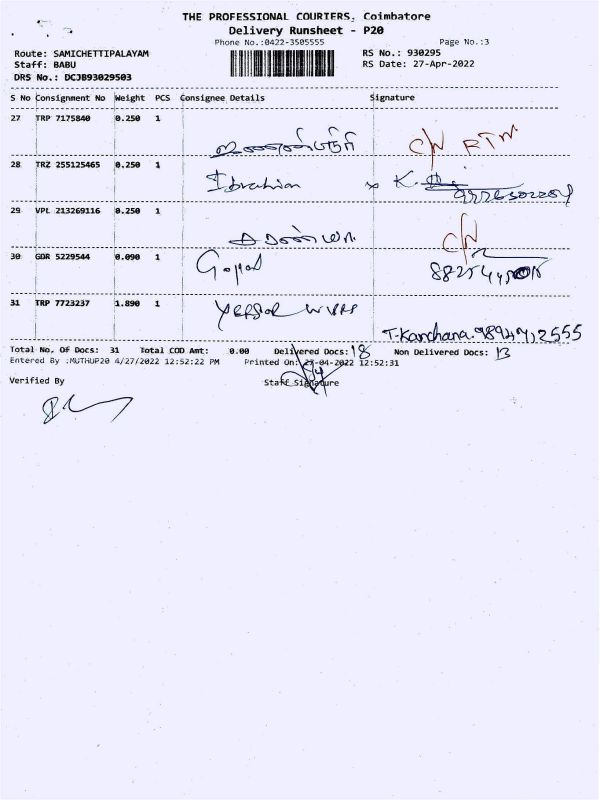 THE PROFESSIONAL COURIERS, Coimbatore
Delivery Runsheet - P20
Phone No.:0422-3505555 Page No.:3
Route: SAMICHETTIPALAYAM RS No.: 930295
Staff: BABU RS Date: 27-Apr-2022
DRS No.: DCJB93029503
S No Consignment No Weight PCS Consignee Details Signature
27 TRP 7175840 0.250 1
C/N RTN
28 TRZ 255125465 0.250 1
Ibrahim x K.
29 VPL 213269116 0.250 1
C/N
30 GDR 5229544 0.090 1
Gopal
31 TRP 7723237 1.890 1
T-Kanchana.
Total No. Of Docs: 31 Total COD Amt: 0.00 Delivered Docs: 18 Non Delivered Docs: 13
Entered By :MUTHUP20 4/27/2022 12:52:22 PM Printed On: 27-04-2022 12:52:31
Verified By Staff Signature